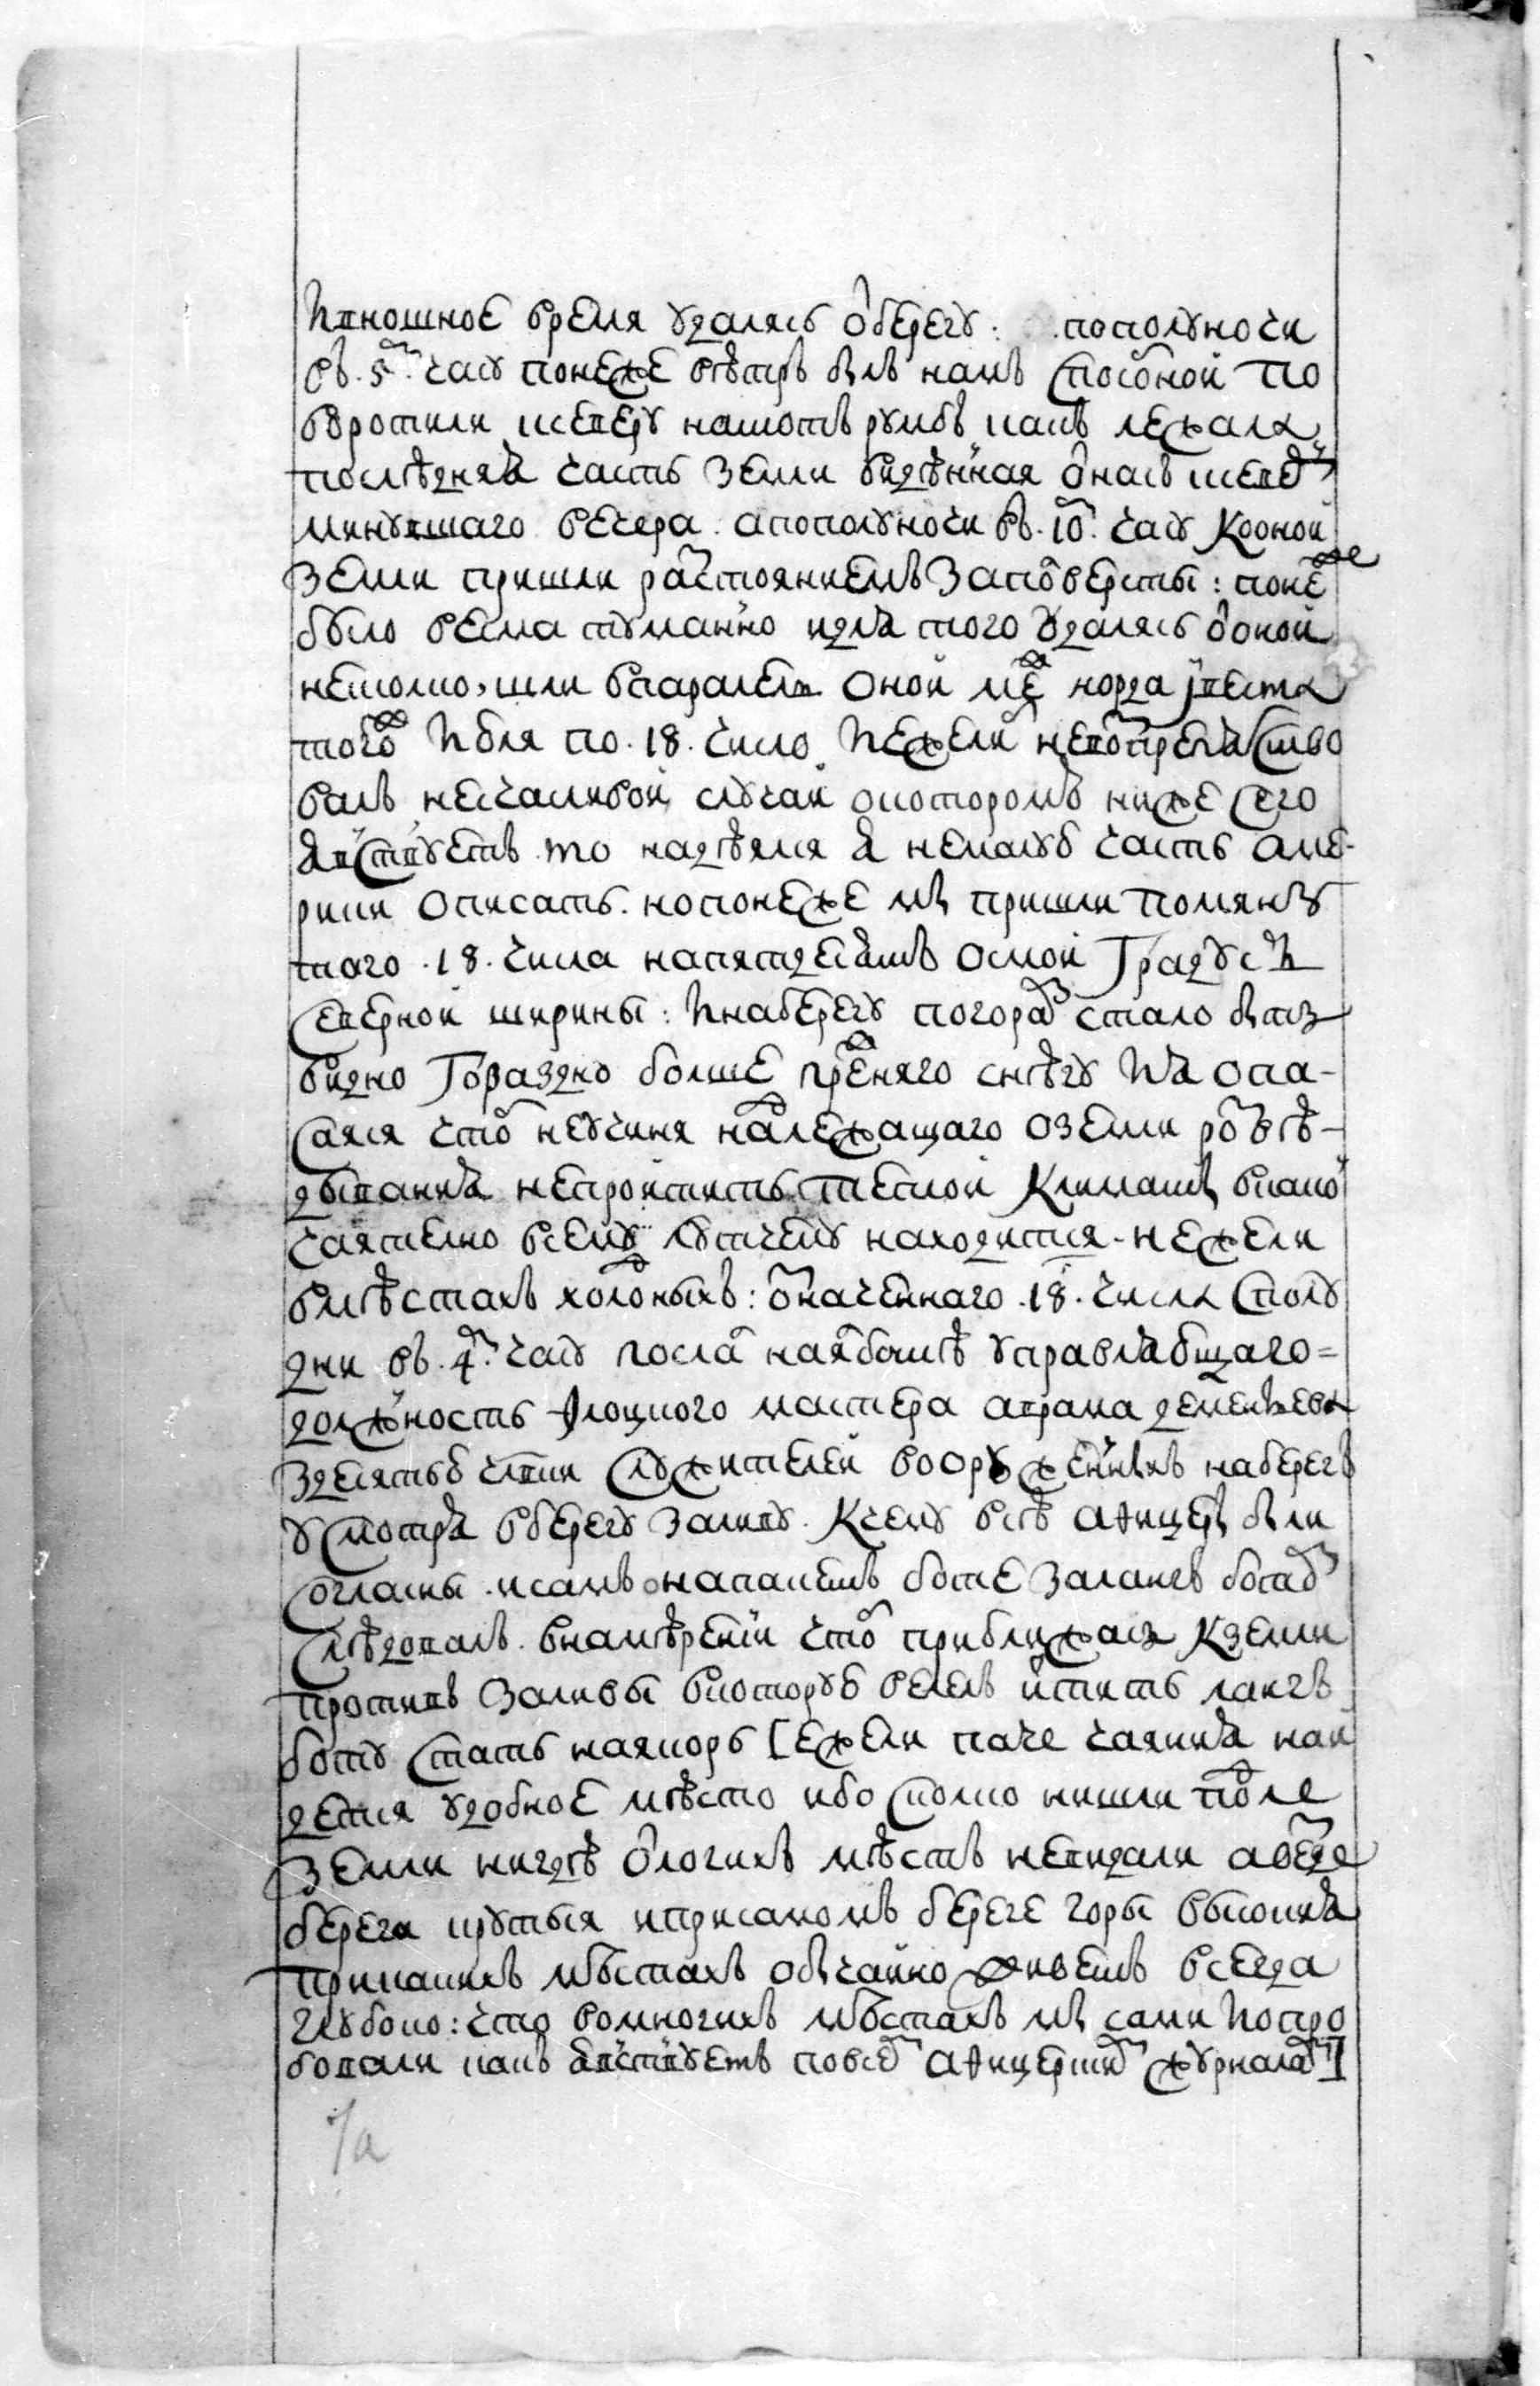 И в ношное время удалясь от берегу: пополуночи
въ . 5м. часу понеже вѣтръ былъ намъ способной по
воротили к северу на тотъ румбъ какъ лежала
послѣдняя часть земли видѣнная от насъ к северу
минувшаго вечера . а пополуночи въ . 10м. часу к оной
земли пришли разстояниемъ за поверсты : понеже
было весма туманно и для того удалясь от оной
нестолко, шли в паралель оной меж норда и веста
тогож июля по . 18 . число и ежели не вопрепятство
валъ несчасливой случай о котором ниже сего
явствуетъ то надѣялся я немалую часть аме-
рики описать . но понеже мы пришли помяну
таго . 18 . числа на пятдесятъ осмой градусъ
северной ширины : и на берегу по горам стало быть
видно гораздо болше прежняго снѣгу и я опа-
саяся чтоб не учиня надлежащаго о земли розвѣ-
дывания не пройтить в тесной климатъ в какой
чаятелно всему лутчему находится - нежели
в мѣстахъ холодныхъ : означенного . 18 . числа с полу
дни въ . 4м. часу послал на ялботѣ управляющаго =
должность флоцкого мастера аврама дементьева
з десятью члвки служителей вооруженныхъ на берегъ
усмотря в берегу заливу . к чему всѣ афицеры были
согласны . и самъ на пакетъ боте за лангъ ботом
слѣдовалъ . в намѣрении чтоб приближась к земли
противъ заливы в которую велелъ иттить лангъ
боту стать на якорь [ ежели паче чаяния най
детца удобное мѣсто ибо сколко ни шли подле
земли нигдѣ отлогихъ мѣстъ не видали а везде
берега крутыя и при самомъ береге горы высокия
при такихъ мѣстахъ обычайно живетъ всегда
глубоко : что во многихъ мѣстахъ мы сами и опро
бовали какъ явствуетъ по всем афицерским журналам ]
7а